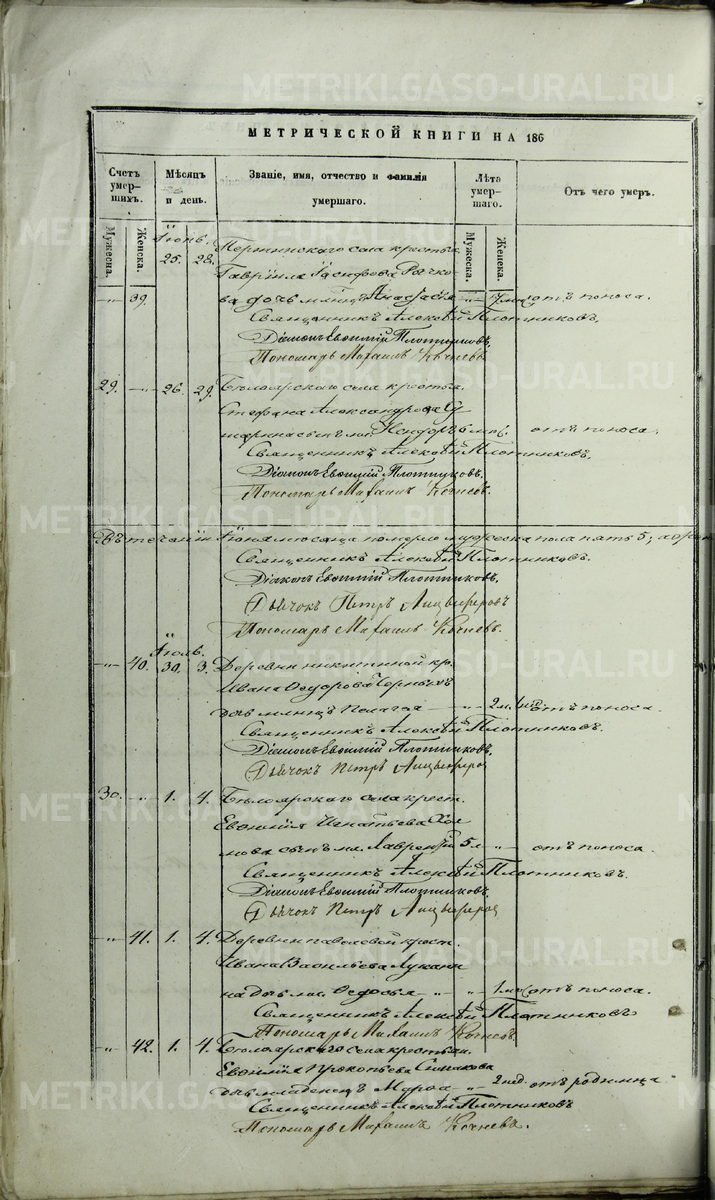 METRIKI.GASO-URAL.RU
МЕТРИЧЕСКОЙ КНИГИ НА 186
Счетъ умер- шихъ.
Мѣсяцъ и день.
Званіе, имя, отчество и фамилія умершаго.
Лѣта умер- шаго.
Отъ чего умеръ.
Мужеска.
Женска.
Мужеска.
Женска.
Іюнь.
25. 28. села крестья.
Гавріила Рачко-
„ 39. ва дочь млнцъ Анастасія „ отъ поноса.
Священникъ Алексѣй Плотниковъ,
Діаконъ Евѳимій Плотниковъ,
Пономарь Михаилъ Кочневъ.
29. „ 26. 29. Бѣлоярскаго села крестья.
Стефана Александрова
сынъ отъ поноса.
Священникъ Алексѣй Плотниковъ,
Діаконъ Евѳимій Плотниковъ,
Пономарь Михаилъ Кочневъ.
Въ теченіи Іюня мѣсяца померло мужеска пола пять 5;
Священникъ Алексѣй Плотниковъ.
Діаконъ Евѳимій Плотниковъ,
Дьячокъ Петръ
Пономарь Михаилъ Кочневъ.
Іюль.
„ 40. 30. 3. Деревни Никитиной кр.
Ивана Ѳедорова Черныхъ
дочь млнцъ Пелагея „ отъ поноса.
Священникъ Алексѣй Плотниковъ.
Діаконъ Евѳимій Плотниковъ,
Дьячокъ Петръ
30. „ 1. 4. Бѣлоярскаго села крест.
Евѳимія Игнатьева Хол
мова сынъ мл. Лаврентій „ отъ поноса.
Священникъ Алексѣй Плотниковъ.
Діаконъ Евѳимій Плотниковъ.
Дьячокъ Петръ
„ 41. 1. 4. Деревни крест.
Ивана Васильева Лукани
на дочь мл. Ѳедосья „ „ отъ поноса.
Священникъ Алексѣй Плотниковъ
Пономарь Михаилъ Кочневъ.
„ 42. 1. 4. Бѣлоярскаго села крестьян.
Евѳимія Прокопьева
дочь младенецъ Марѳа „ 2 нед. отъ родимца
Священникъ Алексѣй Плотниковъ
Пономарь Михаилъ Кочневъ.